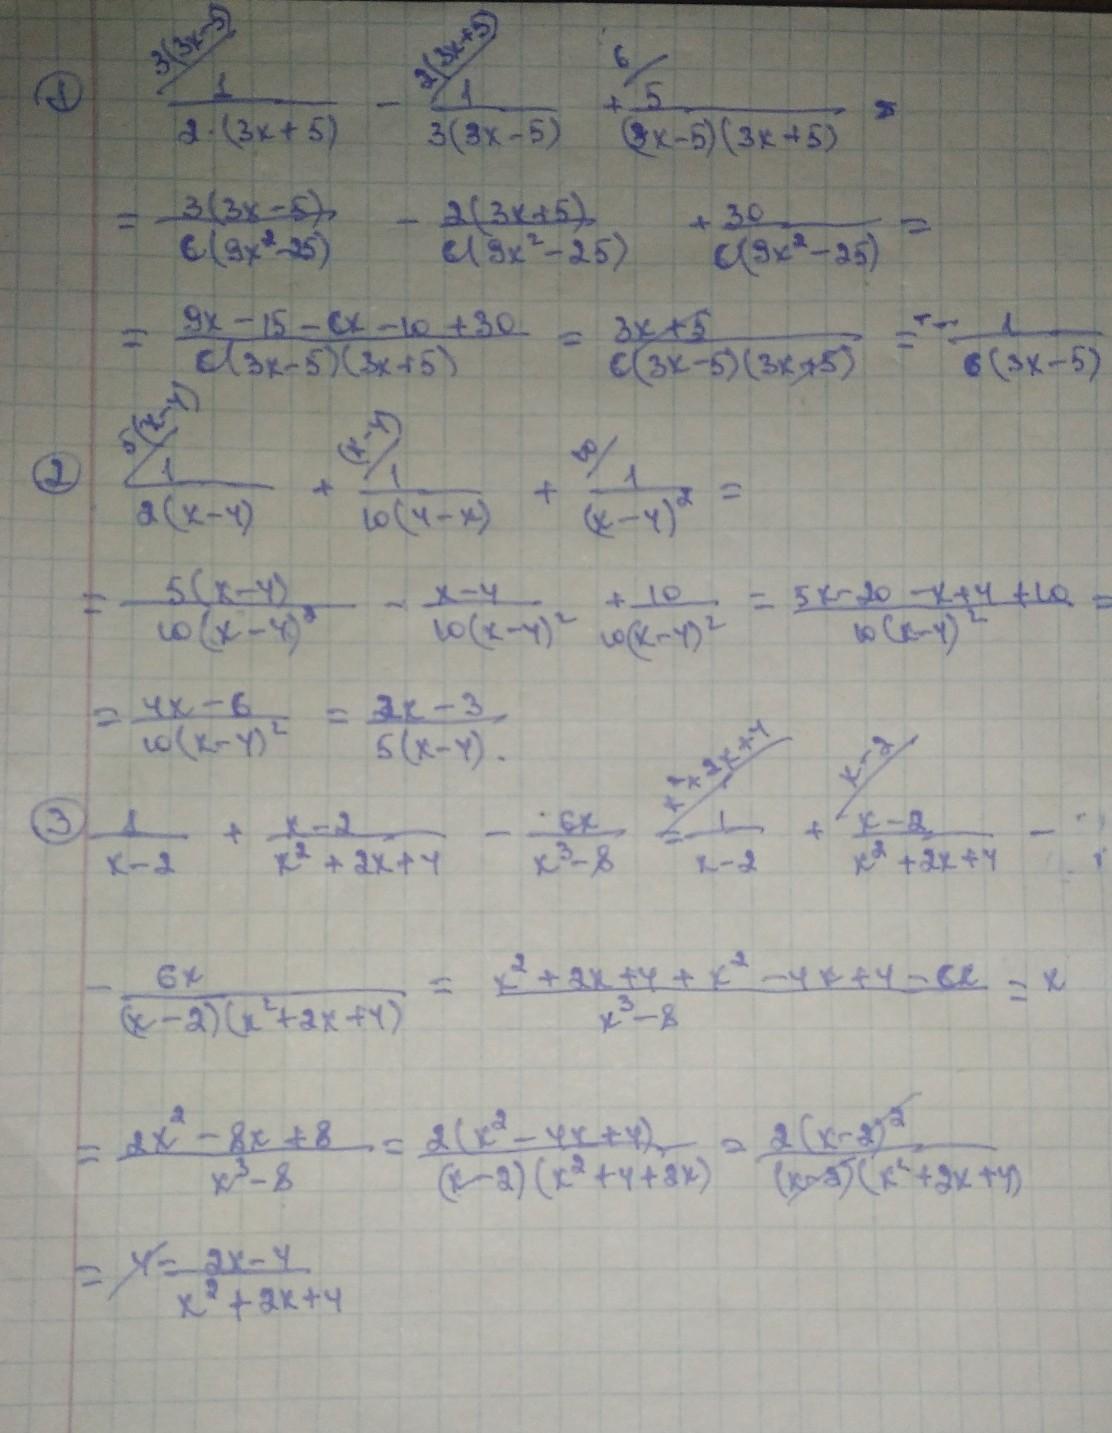 ① 3(3x-5)/ 1/(2·(3x+5)) - 2(3x+5)/ 1/(3(3x-5)) + 6/ 5/((3x-5)(3x+5)) =
= 3(3x-5)/(6(9x²-25)) - 2(3x+5)/(6(9x²-25)) + 30/(6(9x²-25)) =
= (9x-15-6x-10+30)/(6(3x-5)(3x+5)) = (3x+5)/(6(3x-5)(3x+5)) = 1/(6(3x-5))
② 5(x-4)/ 1/(2(x-4)) + (x-4)/ 1/(10(4-x)) + 10/ 1/(x-4)² =
= 5(x-4)/(10(x-4)²) - (x-4)/(10(x-4)²) + 10/(10(x-4)²) = (5x-20-x+4+10)/(10(x-4)²) =
= (4x-6)/(10(x-4)²) = (2x-3)/(5(x-4)).
③ 1/(x-2) + (x-2)/(x²+2x+4) - 6x/(x³-8) = x²+2x+4/ 1/(x-2) + x-2/ (x-2)/(x²+2x+4) -
- 6x/((x-2)(x²+2x+4)) = (x²+2x+4+x²-4x+4-6x)/(x³-8) = x
= (2x²-8x+8)/(x³-8) = 2(x²-4x+4)/((x-2)(x²+4+2x)) = 2(x-2)²/((x-2)(x²+2x+4))
= 4 = (2x-4)/(x²+2x+4)